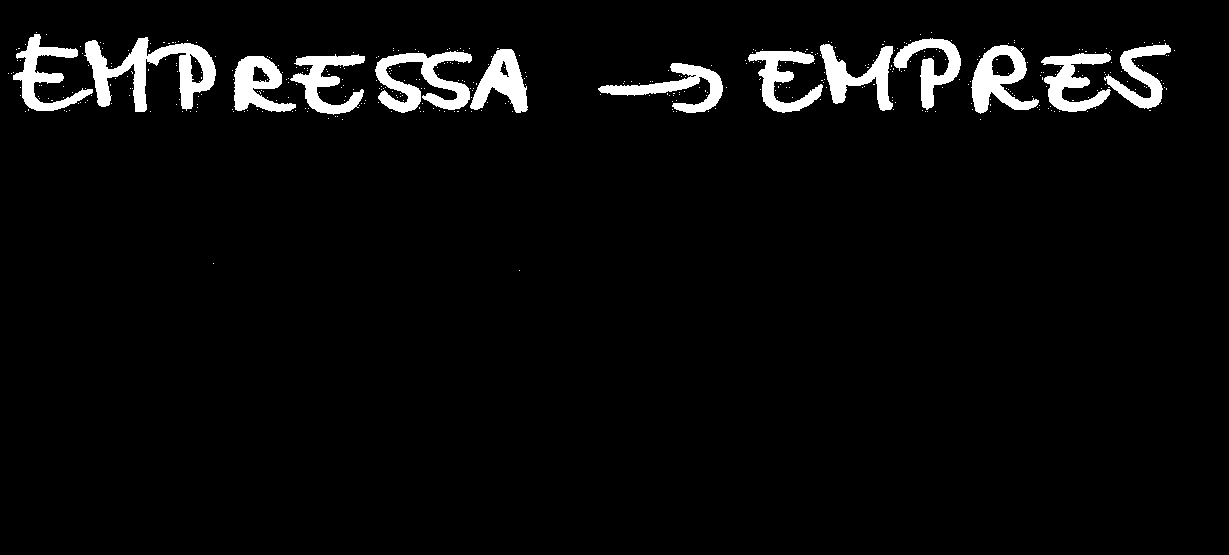 EMPRESSA → EMPRES